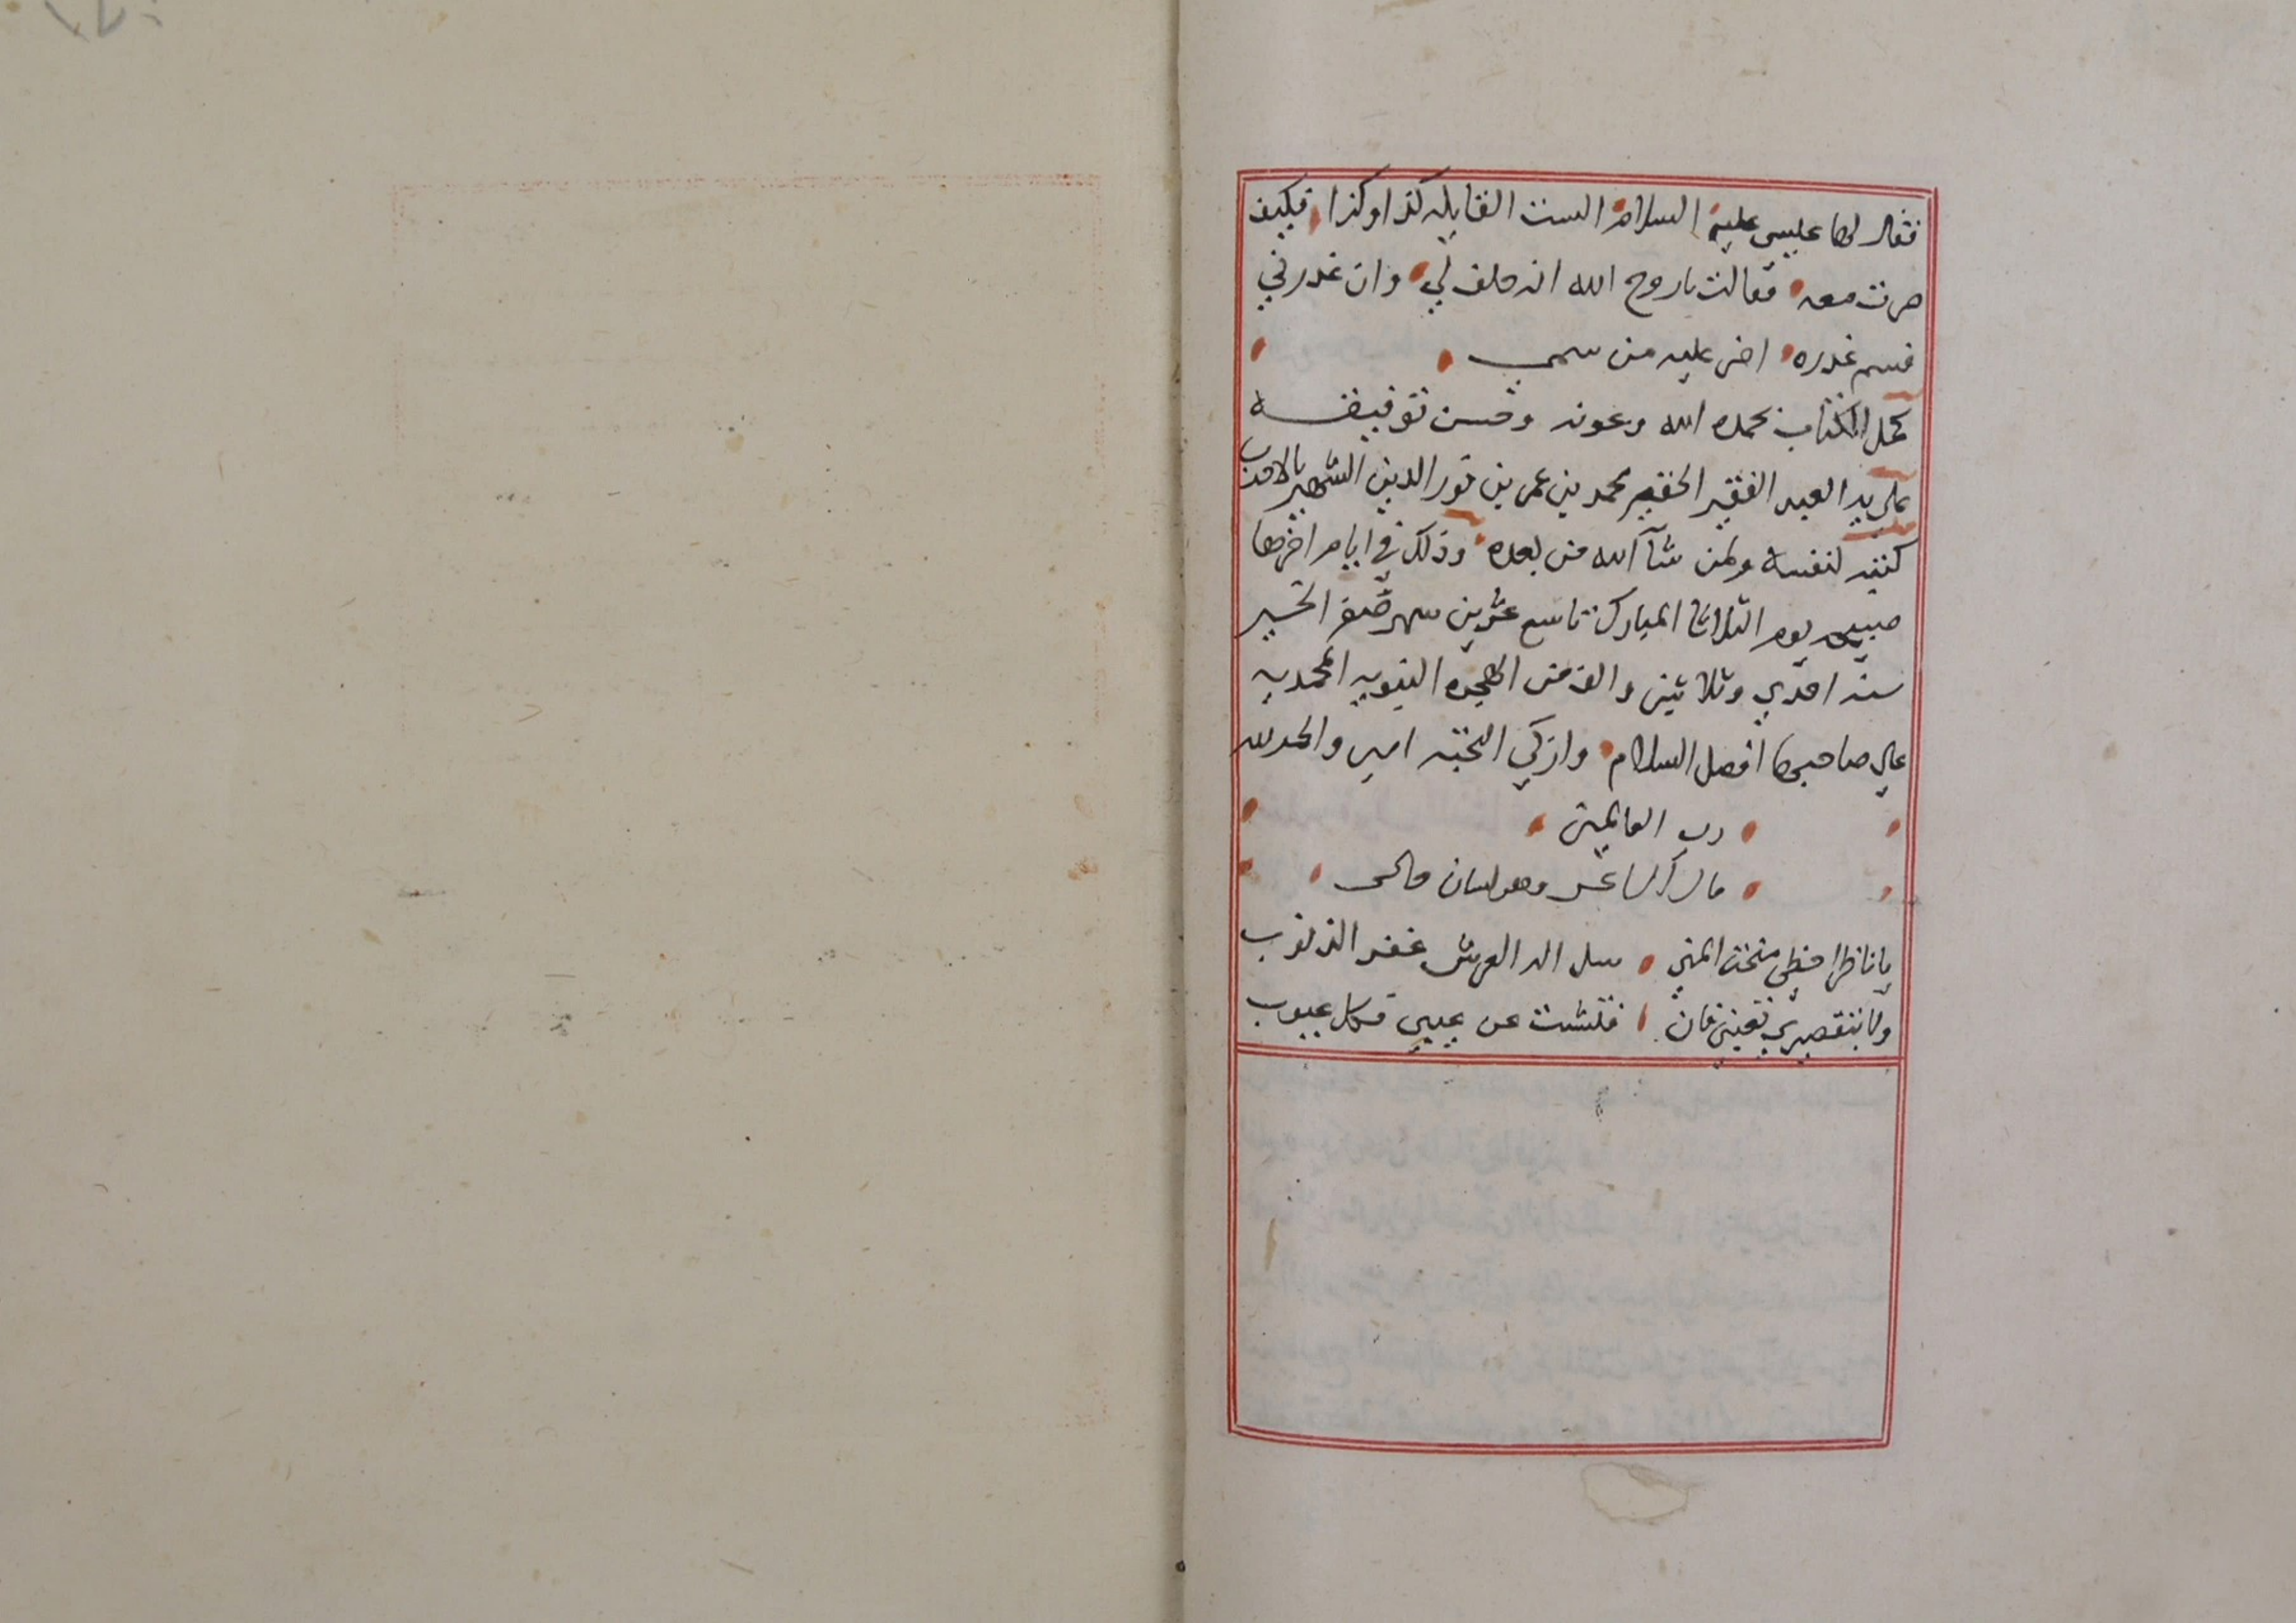 فقال لها عيسى عليه السلام الست القايله كذا وكذا فكيف
صرت معه فقالت ياروح الله انه حلف لي وان غدرني
فسم غدره اضر عليه من سمي
كمل الكتاب بحمده الله وعونه وحسن توفيقه
على يد العبد الفقير الحقير محمد بن عمر بن نور الدين الشهير
كتبه لنفسه ولمن شآ الله من بعده وذلك في ايام اخرها
صبيحه يوم الثلاثا المبارك تاسع عشرين شهر صفر الخير
سنه احدي وثلاثين والف من الهجره النبويه المحمديه
علي صاحبها افضل السلام وازكي التحيه امين والحمد لله
رب العالمين
وهو لسان حالى
يا ناظرا خطي منحت المني سل اله العرش غفر الذنوب
ولا بتقصيري فان فتشت عن عيبي فكل عيوب